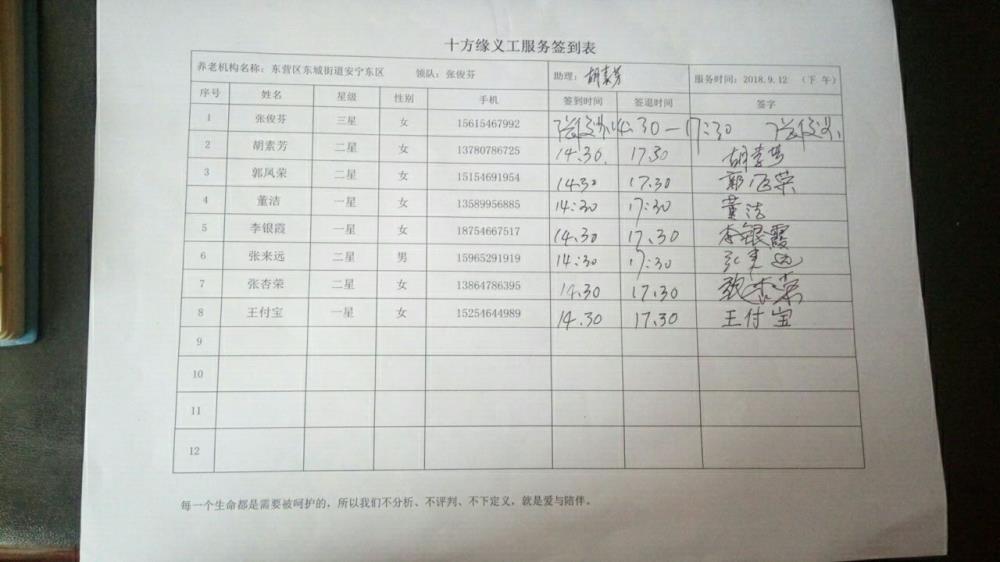 十方缘义工服务签到表
养老机构名称：东营区东城街道安宁东区 领队：张俊芬 助理：胡素芳 服务时间：2018.9.12 （下 午）
序号 姓名 星级 性别 手机 签到时间 签退时间 签字
1 张俊芬 三星 女 15615467992 张俊芬 14:30—17:30 张俊芬
2 胡素芳 二星 女 13780786725 14.30. 17.30 胡素芳
3 郭凤荣 二星 女 15154691954 14.30 17.30 郭凤荣
4 董洁 一星 女 13589956885 14:30 17:30 董洁
5 李银霞 一星 女 18754667517 14.30 17.30 李银霞
6 张来远 二星 男 15965291919 14:30 17:30 张来远
7 张杏荣 二星 女 13864786395 14.30 17.30 张杏荣
8 王付宝 一星 女 15254644989 14.30 17.30 王付宝
9
10
11
12
每一个生命都是需要被呵护的，所以我们不分析、不评判、不下定义，就是爱与陪伴。